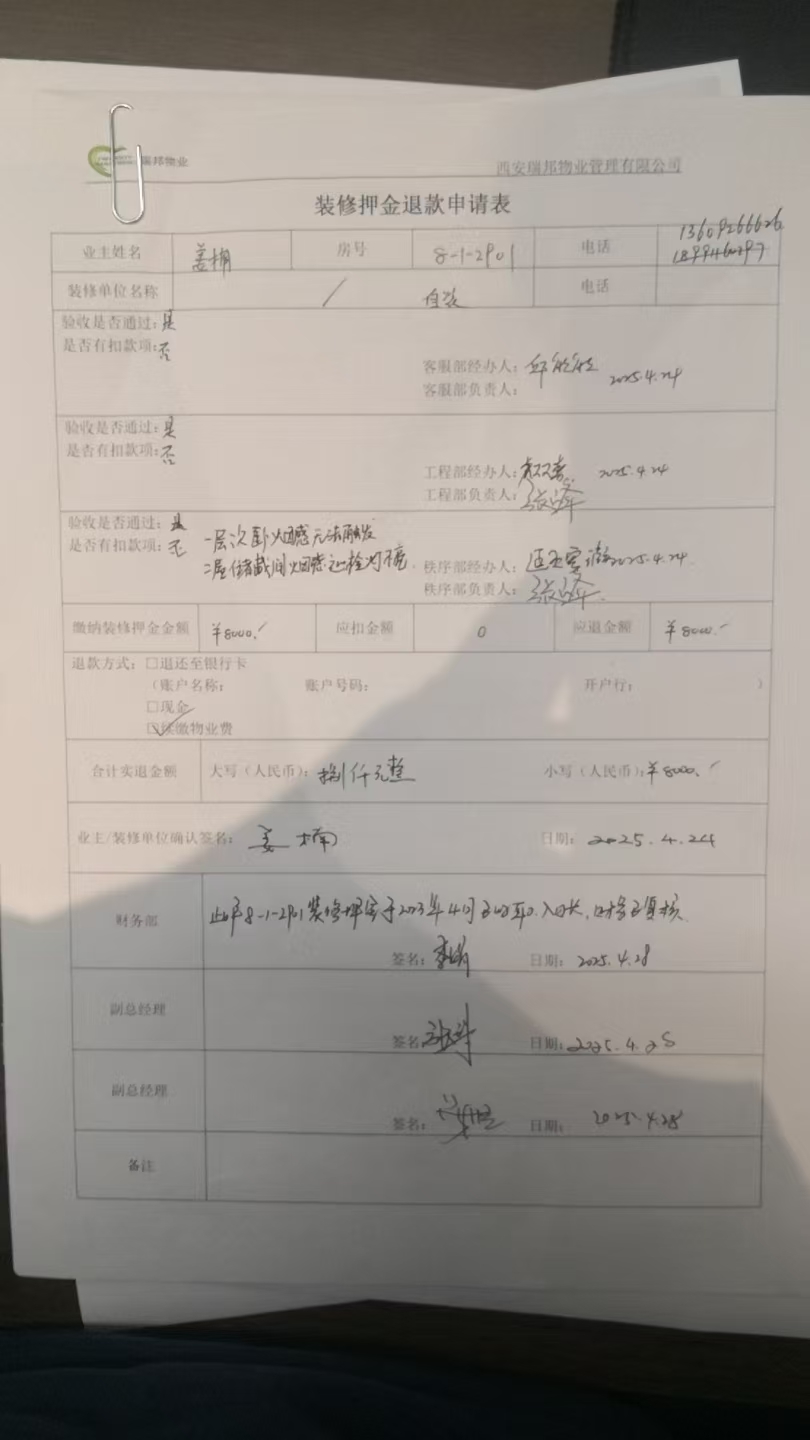 瑞邦物业 西安瑞邦物业管理有限公司
装修押金退款申请表
13609266626
业主姓名 姜楠 房号 8-1-2901 电话
装修单位名称 / 自装 电话
验收是否通过：是
是否有扣款项：否
客服部经办人： 2025.4.24
客服部负责人：
验收是否通过：是
是否有扣款项：否
工程部经办人： 2025.4.24
工程部负责人：
验收是否通过：是 一层次卧烟感无法触发
是否有扣款项：否 二层储藏间烟感巡检灯不亮
秩序部经办人： 2025.4.24
秩序部负责人：
缴纳装修押金金额 ¥8000.- 应扣金额 0 应退金额 ¥8000.-
退款方式：□退还至银行卡
（账户名称： 账户号码： 开户行： ）
□现金
☑续缴物业费
合计实退金额 大写（人民币）：捌仟元整 小写（人民币）：¥8000.-
业主/装修单位确认签名：姜楠 日期：2025.4.24
财务部 此户8-1-2901装修押金于2023年4月 财务已复核.
签名： 日期：2025.4.28
副总经理
签名： 日期：2025.4.28
副总经理
签名： 日期：2025.4.28
备注